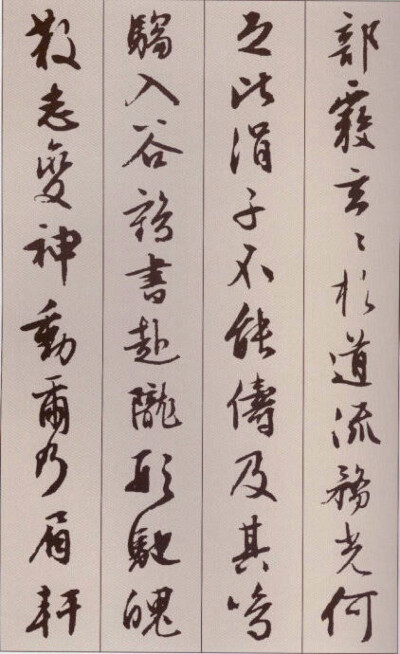 部覈玄〻於道流務光何
足比涓子不能儔及其鳴
騶入谷鶴書赴隴形馳魄
散志變神動爾乃眉軒